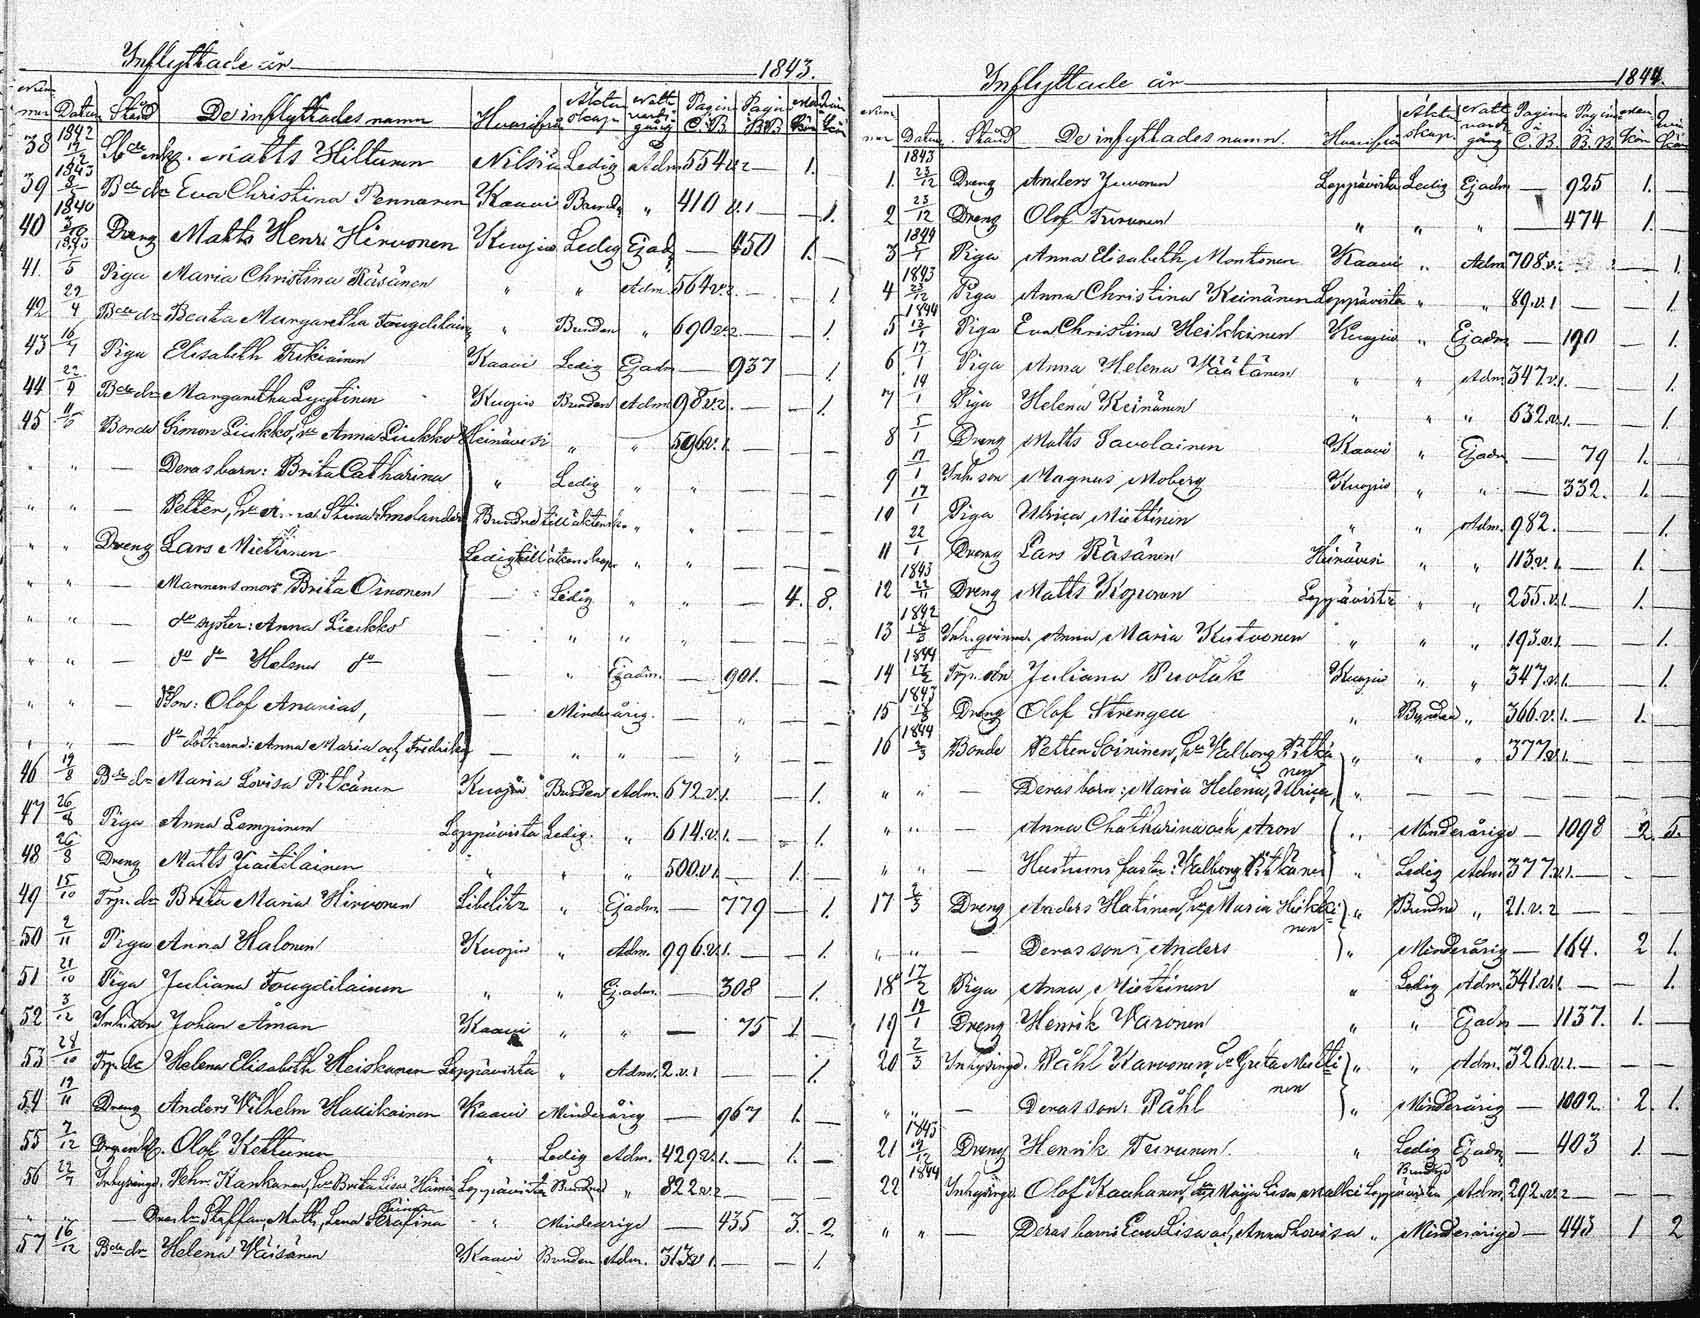 Inflyttade år 1843.
Num mer Datum Stånd De inflyttades namn Hvarifrån Äkten skap Natt vards gång Pagina C.B. Pagina B.B. Man kön Qvin kön
38 1842 Matts Hiltunen Nilsiä Ledig Adm. 554 v. 2 — 1.
39 1843 Bde dr Eva Christina Pennanen Kaavi Bunden „ 410 v. 1 — — 1.
40 1840 Dreng Matts Henr. Hirvonen Kuopio Ledig Ejad. — 450 1. —
41. 1843 Piga Maria Christina Räsänen „ „ Adm. 564 v. 2. — — 1.
42 22/4 Bde dr Beata Margaretha Fougdilainen „ Bunden „ 690 v. 2. — — 1.
43 Piga Elisabeth Kaavi Ledig Ejadm. — 937 — 1.
44 22/4 Bde dr Margaretha Lyytinen Kuopio Bunden Adm. 98 v. 2. — — 1.
45 11/5 Bonde Simon Liukko, hu Anna Liukko Heinävesi „ „ 596 v. 1. — — —
„ „ — Deras barn: Brita Catharina „ Ledig „ „ — — —
„ „ — Petter, Stina Smolander Bundne till äktensk. „ „ — — —
„ „ Dreng Lars Miettinen Ledig till äktenskap „ „ — — —
„ „ — Mannens mor: Brita Oinonen — Ledig „ „ — 4. 8.
„ „ — do syster: Anna Liukko — „ „ „ — — —
„ „ — do do Helena do — „ Ejadm. — 901. — —
„ „ — Son: Olof Ananias, — Minderårig — „ — —
„ „ — do döttrarna: Anna Maria och Fredrika — „ „ — „ — —
46 19/8 Bde dr Maria Lovisa Pitkänen Kuopio Bunden Adm. 672 v. 1. — — 1.
47 26/8 Piga Anna Lempinen Leppävirta Ledig. „ 614 v. 1. — — 1.
48 26/8 Dreng Matts „ „ „ 500 v. 1. — 1. —
49 15/10 Trp. dr Brita Maria Hirvonen Libelitz „ Ejadm. — 779 — 1.
50 2/11 Piga Anna Halonen Kuopio „ Adm. 996 v. 1. — — 1.
51 21/10 Piga Juliana Fougdilainen „ „ Ej. adm. — 308 — 1.
52 3/12 Inh. son Johan Åman Kaavi „ „ — 75 1. —
53 28/10 Trp. dr Helena Elisabeth Heiskanen Leppävirta „ Adm. 2 v. 1 — — 1.
54 19/11 Dreng Anders Wilhelm Hallikainen Kaavi Minderårig — 967 1. —
55 7/12 Olof Kettunen „ Ledig Adm. 429 v. 1. — 1. —
56 22/7 Inhysinge. Pehr Kankanen, hu Brita Lisa Leppävirta Bundne „ 822 v. 2 —
„ „ — Deras bn Staffan, Matts, Lena Serafina „ Minderårige — 435 3. 2.
57 16/12 Bde dr Helena Väisänen Kaavi Bunden Adm. 313 v. 1. — — 1.
Inflyttade år 1844.
Num mer Datum Stånd De inflyttades namn. Hvarifrån Äkten skap. Natt vards gång Pagina i C.B. Pagina i B.B. Man kön Qvin kön
1. 1843 23/12 Dreng Anders Juvonen Leppävirta Ledig Ejadm — 925 1. —
2 23/12 Dreng Olof Turunen „ „ „ — 474 1. —
3 1844 5/1 Piga Anna Elisabeth Montonen Kaavi „ Adm. 708 v. 2 — 1.
4 1843 23/12 Piga Anna Christina Keinänen Leppävirta „ „ 89 v. 1 — — 1.
5 1844 13/1 Piga Eva Christina Heikkinen Kuopio „ Ejadm. — 190 — 1.
6 17/1 Piga Anna Helena Väätänen „ „ Adm. 347 v. 1. — — 1.
7 19/1 Piga Helena Keinänen „ „ „ 632 v. 1. — — 1.
8 5/1 Dreng Matts Savolainen Kaavi „ Ejadm. — 79 1. —
9 17/1 Inh. son Magnus Moberg Kuopio „ „ — 332. 1. —
10 17/1 Piga Ulrica Miettinen „ „ Adm. 982. — — 1.
11 22/1 Dreng Lars Räsänen Heinävesi „ „ 113 v. 1. — 1. —
12 1843 22/11 Dreng Matts Koponen Leppävirta „ „ 255 v. 1. — 1. —
13 1842 18/3 Inh. qvinna Anna Maria Kutvonen „ „ „ 193 v. 1. — — 1.
14 1844 17/2 Trp. dr Juliana Puolak Kuopio „ „ 347 v. 1. — — 1.
15 1843 18/8 Dreng Olof Strengell „ Bunden „ 366 v. 1. — 1. —
16 1844 2/3 Bonde Petter Soininen, hu Walborg Pitkä „ „ „ 377 v. 1. — — —
nen
„ „ — Deras barn: Maria Helena, Ulrica, „ — — — — — —
„ „ — Anna Chatharina och Aron „ Minderårige — 1098 2. 5.
„ „ — Hustruns faster: Walborg Pitkänen „ Ledig Adm. 377 v. 1. — — —
17 2/3 Dreng Anders Hatinen, hu Maria Heikki „ Bundne „ 21 v. 2 — — —
nen
„ „ — Deras son: Anders „ Minderårig — 164. 2 1.
18 17/2 Piga Anna Miettinen „ Ledig Adm. 341 v. 1. — — 1.
19 19/1 Dreng Henrik Varonen „ „ Ejadm — 1137. 1. —
20 2/3 Inhysinge. Påhl Karvonen, hu Greta Mietti „ „ Adm. 326 v. 1. — — —
nen
„ „ — Deras son: Påhl „ Minderårig — 1002. 2. 1.
21 1843 19/12 Dreng Henrik Turunen. „ Ledig Ejadm. — 403 1. —
22 1844 Inhysinge Olof Kauhanen, hu Maija Lisa Malkei Leppävirta Bundne Adm. 292 v. 2 — — —
„ „ — Deras barn: Eva Lisa och Anna Lovisa „ Minderårige — 443 1 2